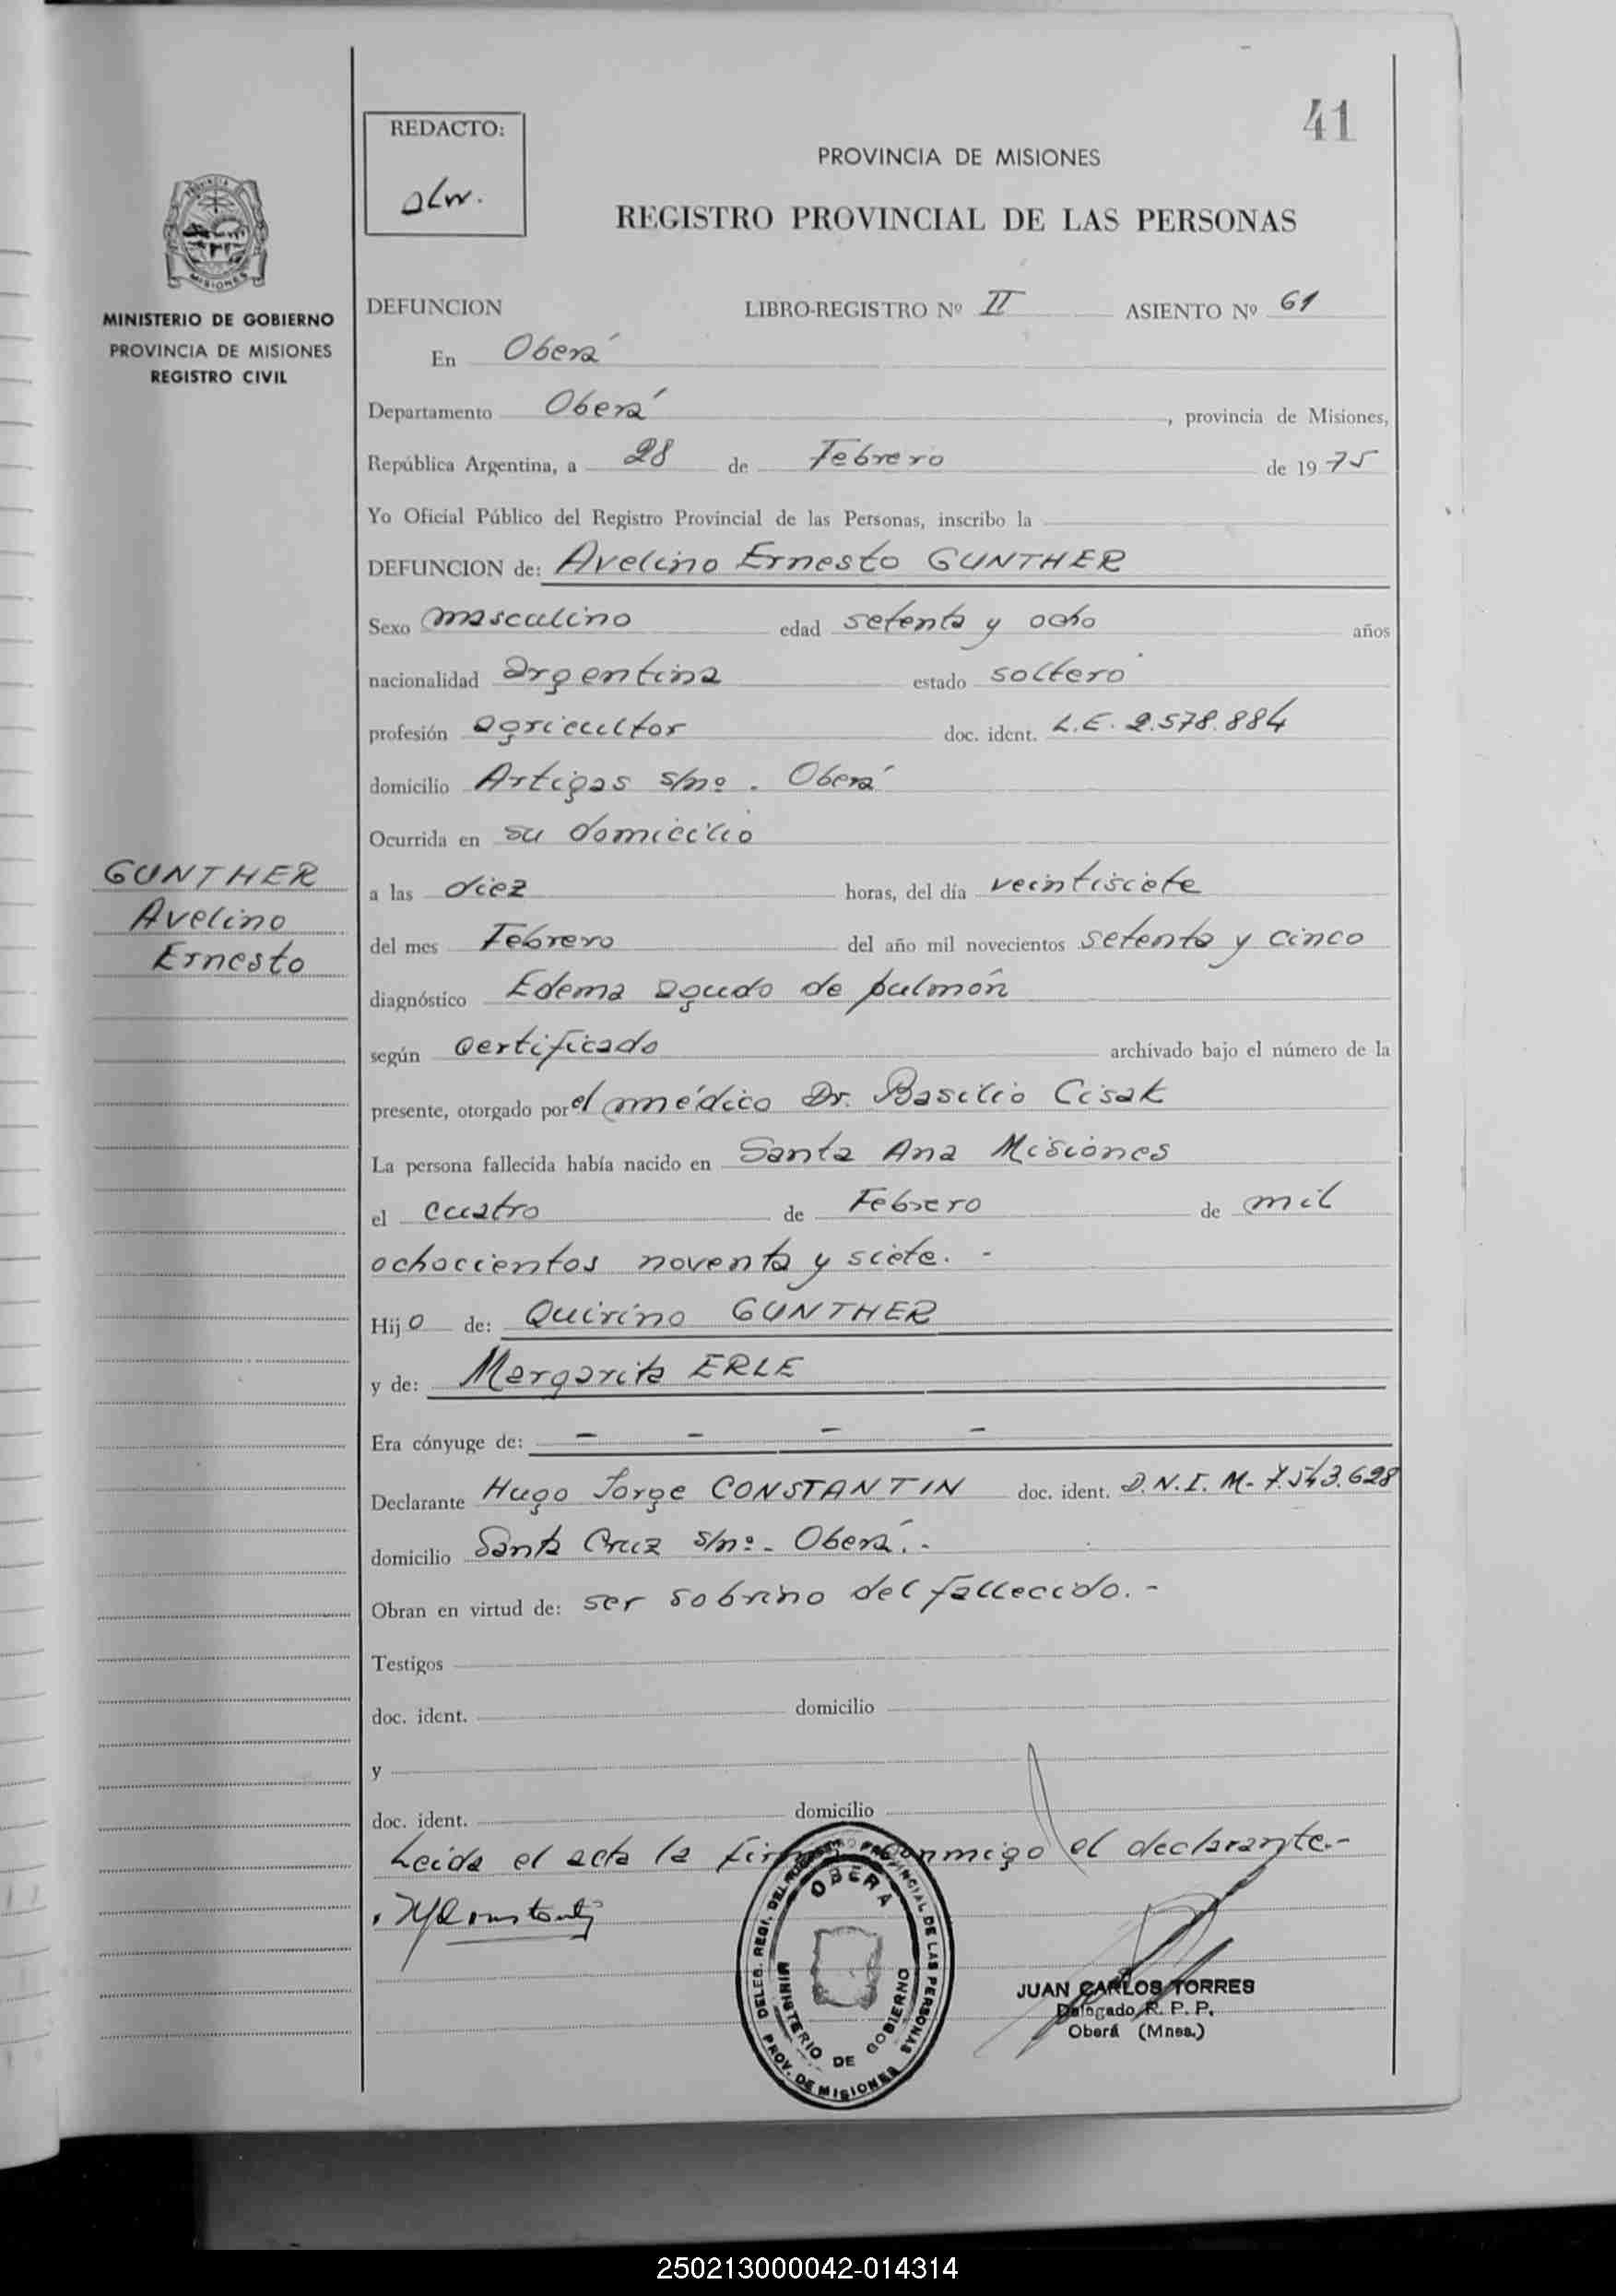 41
REDACTO:
PROVINCIA DE MISIONES
REGISTRO PROVINCIAL DE LAS PERSONAS
MISIONES
MINISTERIO DE GOBIERNO
PROVINCIA DE MISIONES
REGISTRO CIVIL
DEFUNCION LIBRO-REGISTRO Nº II ASIENTO Nº 61
En Oberá
Departamento Oberá, provincia de Misiones,
República Argentina, a 28 de Febrero de 1975
Yo Oficial Público del Registro Provincial de las Personas, inscribo la
DEFUNCION de: Avelino Ernesto GUNTHER
Sexo masculino edad setenta y ocho años
nacionalidad argentina estado soltero
profesión agricultor doc. ident. L.E. 2.578.884
domicilio Artigas s/nº. Oberá
Ocurrida en su domicilio
GUNTHER
Avelino
Ernesto
a las diez horas, del día veintisiete
del mes Febrero del año mil novecientos setenta y cinco
diagnóstico Edema agudo de pulmón
según certificado archivado bajo el número de la
presente, otorgado por el médico Dr. Basilio Cisak
La persona fallecida había nacido en Santa Ana Misiones
el cuatro de Febrero de mil
ochocientos noventa y siete. -
Hijo de: Quirino GUNTHER
y de: Margarita ERLE
Era cónyuge de: - - - -
Declarante Hugo Jorge CONSTANTIN doc. ident. D.N.I. M- 7.543.628
domicilio Santa Cruz s/nº- Oberá.-
Obran en virtud de: ser sobrino del fallecido.-
Testigos
doc. ident. domicilio
y
doc. ident. domicilio
Leida el acta la conmigo el declarante.-
OBERA
MINISTERIO DE GOBIERNO
PROV. DE MISIONES
JUAN CARLOS TORRES
Delegado R. P. P.
Oberá (Mnes.)
250213000042-014314